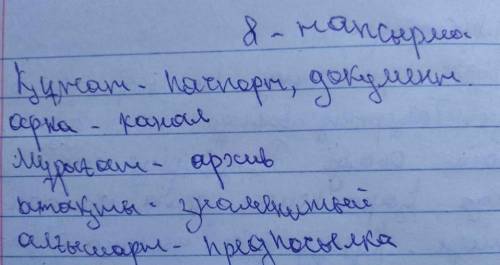 8 - тапсырма
Құжат - пачпорт, документ.
арна - канал
Мұрағат - архив
атақты - знаменитый
алғышарт - предпосылка